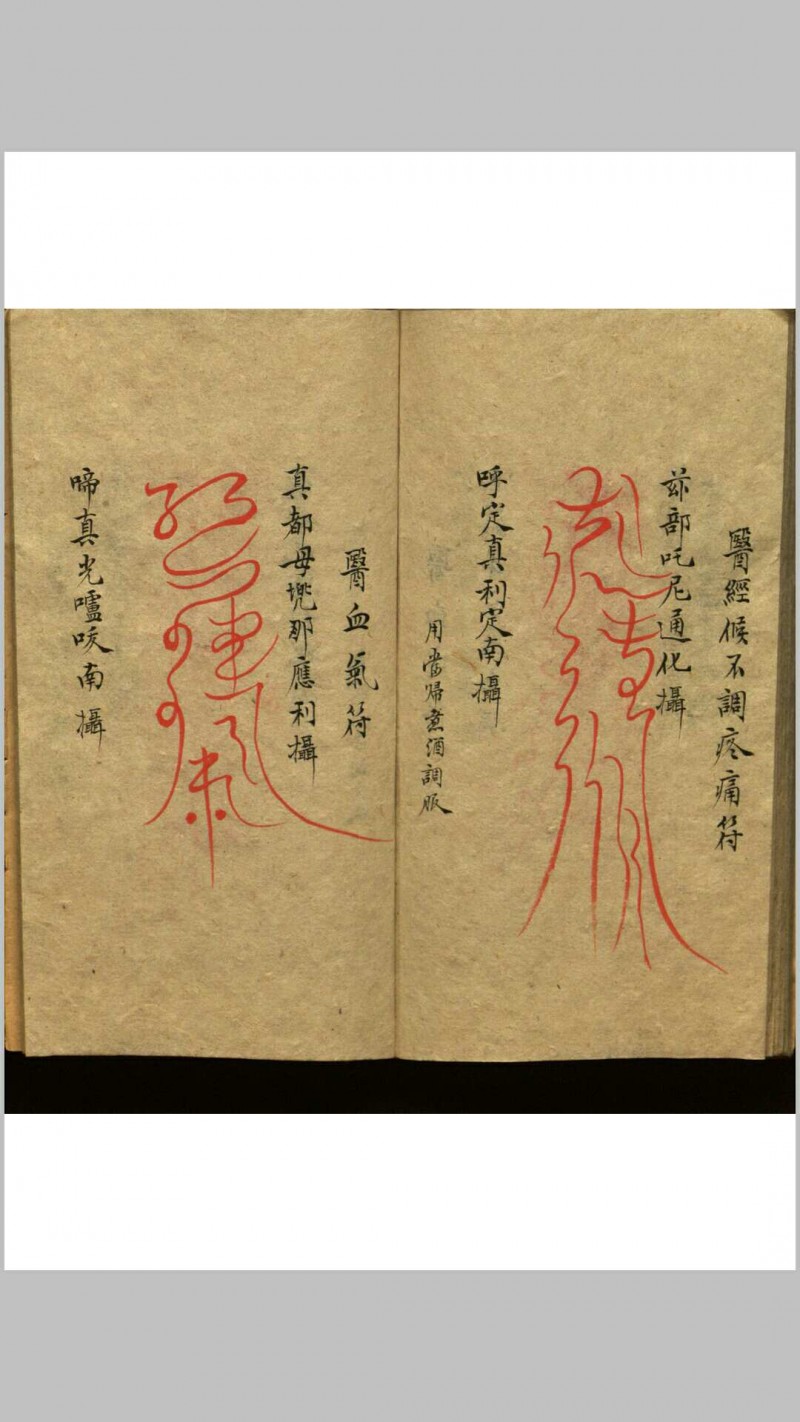 醫經候不調疼痛符
茲部吒尼通化攝
呼定真利定南攝
用當歸煮酒調服
醫血氣符
真都母兜那應利攝
啼真光嚧㕹南攝